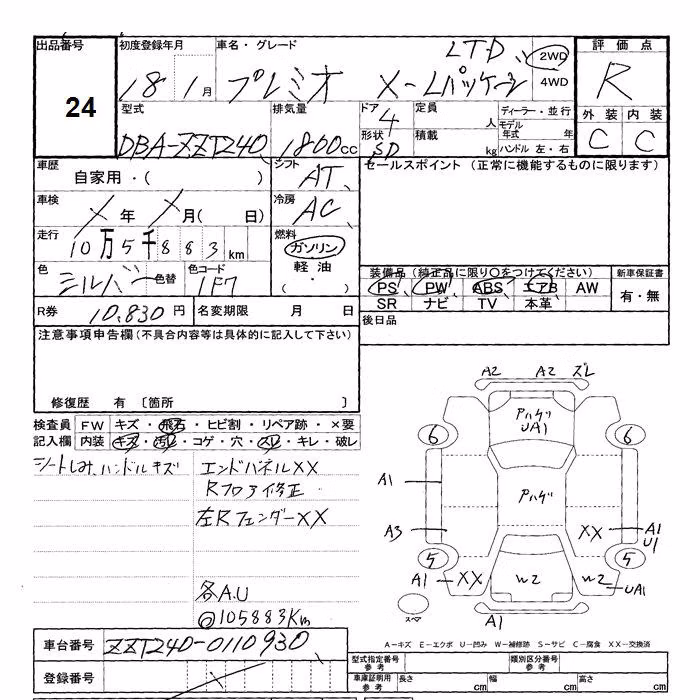 出品番号 初度登録年月 車名・グレード 評価点
24
18 1月 プレミオ LTD、 X-Lパッケージ 2WD 4WD
R
外装 内装
C C
型式 排気量 ドア 定員 ディーラー・並行
DBA-ZZT240、 1800cc 4 人 モデル年式 年
形状 積載
SD kg ハンドル 左・右
車歴 シフト セールスポイント (正常に機能するものに限ります)
自家用・( ) AT、
車検 冷房
X年 X月( 日) AC、
走行 燃料
10万5千883km ガソリン
色 色替 色コード 軽油
シルバー 1F7 ( ・ )
装備品 (純正品に限り○をつけてください) 新車保証書
PS PW ABS エアB AW 有・無
SR ナビ TV 本革
R券 10,830円 名変期限 月 日 後日品
注意事項申告欄(不具合内容等は具体的に記入して下さい)
修復歴 有 〔箇所 〕
検査員 FW キズ・飛石・ヒビ割・リペア跡・×要
記入欄 内装 キズ・汚レ・コゲ・穴・スレ・キレ・破レ
シートしみ、ハンドルキズ エンドパネルXX
Rフロア修正
左RフェンダーXX
各A.U
@105883Km
A2 A2 ズレ
アハゲ
UA1
6 6
A1
アハゲ
A3 XX A1
U1
5 5
A1 XX W2 W2 UA1
スペア A1
A-キズ E-エクボ U-凹み W-補修跡 S-サビ C-腐食 XX-交換済
車台番号 ZZT240-0110930、
登録番号
型式指定番号 参考 類別区分番号 参考
車庫証明用 参考 長さ cm 幅 cm 高さ cm